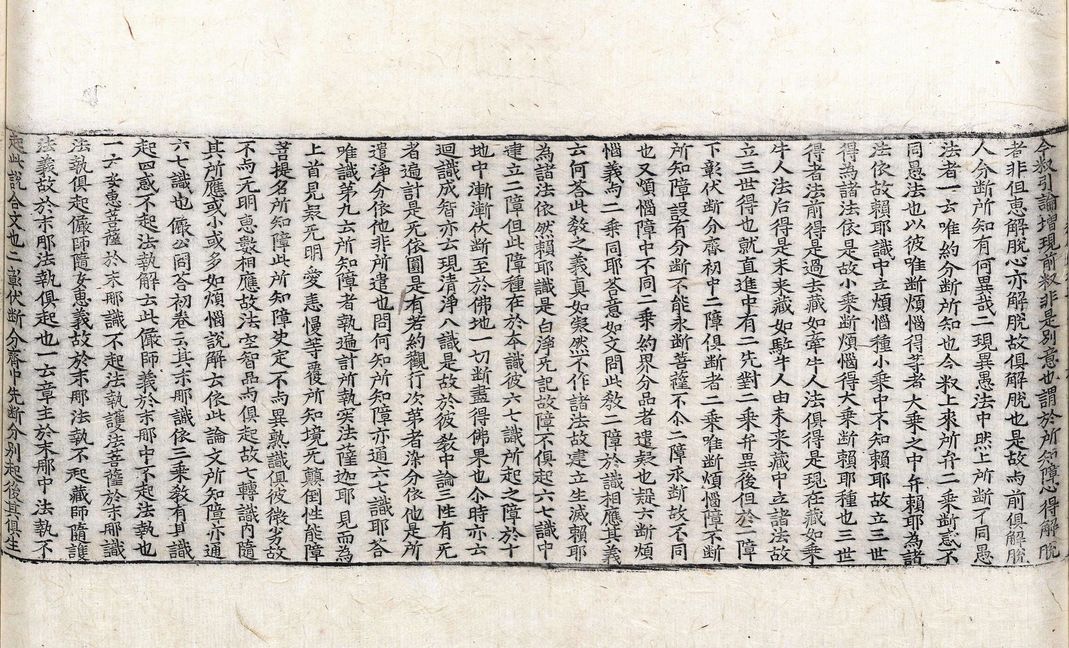 今叙引論增現前叙非是別意也謂於所知障心得解脫
者非但惠解脫心亦解脫故俱解脫也是故与前俱解脫
人分断所知有何異哉二現異愚法中然上所断了同愚
法者一云唯約分断所知也今叙上來所弁二乗断惑不
同愚法也以彼唯断煩惱得等者大乗之中弁頼耶為諸
法依故頼耶識中立煩惱種小乗中不知頼耶故立三世
得為諸法依是故小乗断煩惱得大乗断頼耶種也三世
得者法前得是過去藏如牽牛人法俱得是現在藏如乗
牛人法后得是未来藏如駈牛人由未来藏中立諸法故
立三世得也就直進中有二先對二乗弁異後但於二障
下彰伏断分齊初中二障俱断者二乗唯断煩惱障不断
所知障設有分断不能永断菩薩不尒二障永断故不同
也又煩惱障中不同二乗約界分品者遣疑也疑六断煩
惱義与二乗同耶荅意如文問此教二障於識相應其義
云何荅此教之義真如凝然不作諸法故建立生滅頼耶
為諸法依然頼耶識是白淨无記故障不俱起六七識中
建立二障但此障種在於本識彼六七識所起之障於十
地中漸漸伏断至於佛地一切断盡得佛果也尒時亦六
迴識成智亦云現清淨八識是故於彼教中論三性有死
者遍計是无依圓是有若約觀行次第者染分依他是所
遣淨分依他非所遣也問何知所知障亦通六七識耶荅
唯識第九云所知障者執遍計所執實法薩迦耶見而為
上首見疑无明愛恚慢等覆所知境无顛倒性能障
菩提名所知障此所知障決定不与異熟識俱彼微劣故
不与无明惠數相應故法空智品与俱起故七轉識內隨
其所應或小或多如煩惱說解云依此論文所知障亦通
六七識也儼公問荅初卷云其末那識依三乗教有其識
起四惑不起法執解云此儼師義於末那中不起法執也
一云安惠菩薩於末那識不起法執護法菩薩於末那識
法執俱起儼師隨安惠義故於末那法執不起藏師隨護
法義故於末那法執俱起也一云章主於末那中法執不
起此說合文也二弁伏断分齊中先断分別起後其俱生